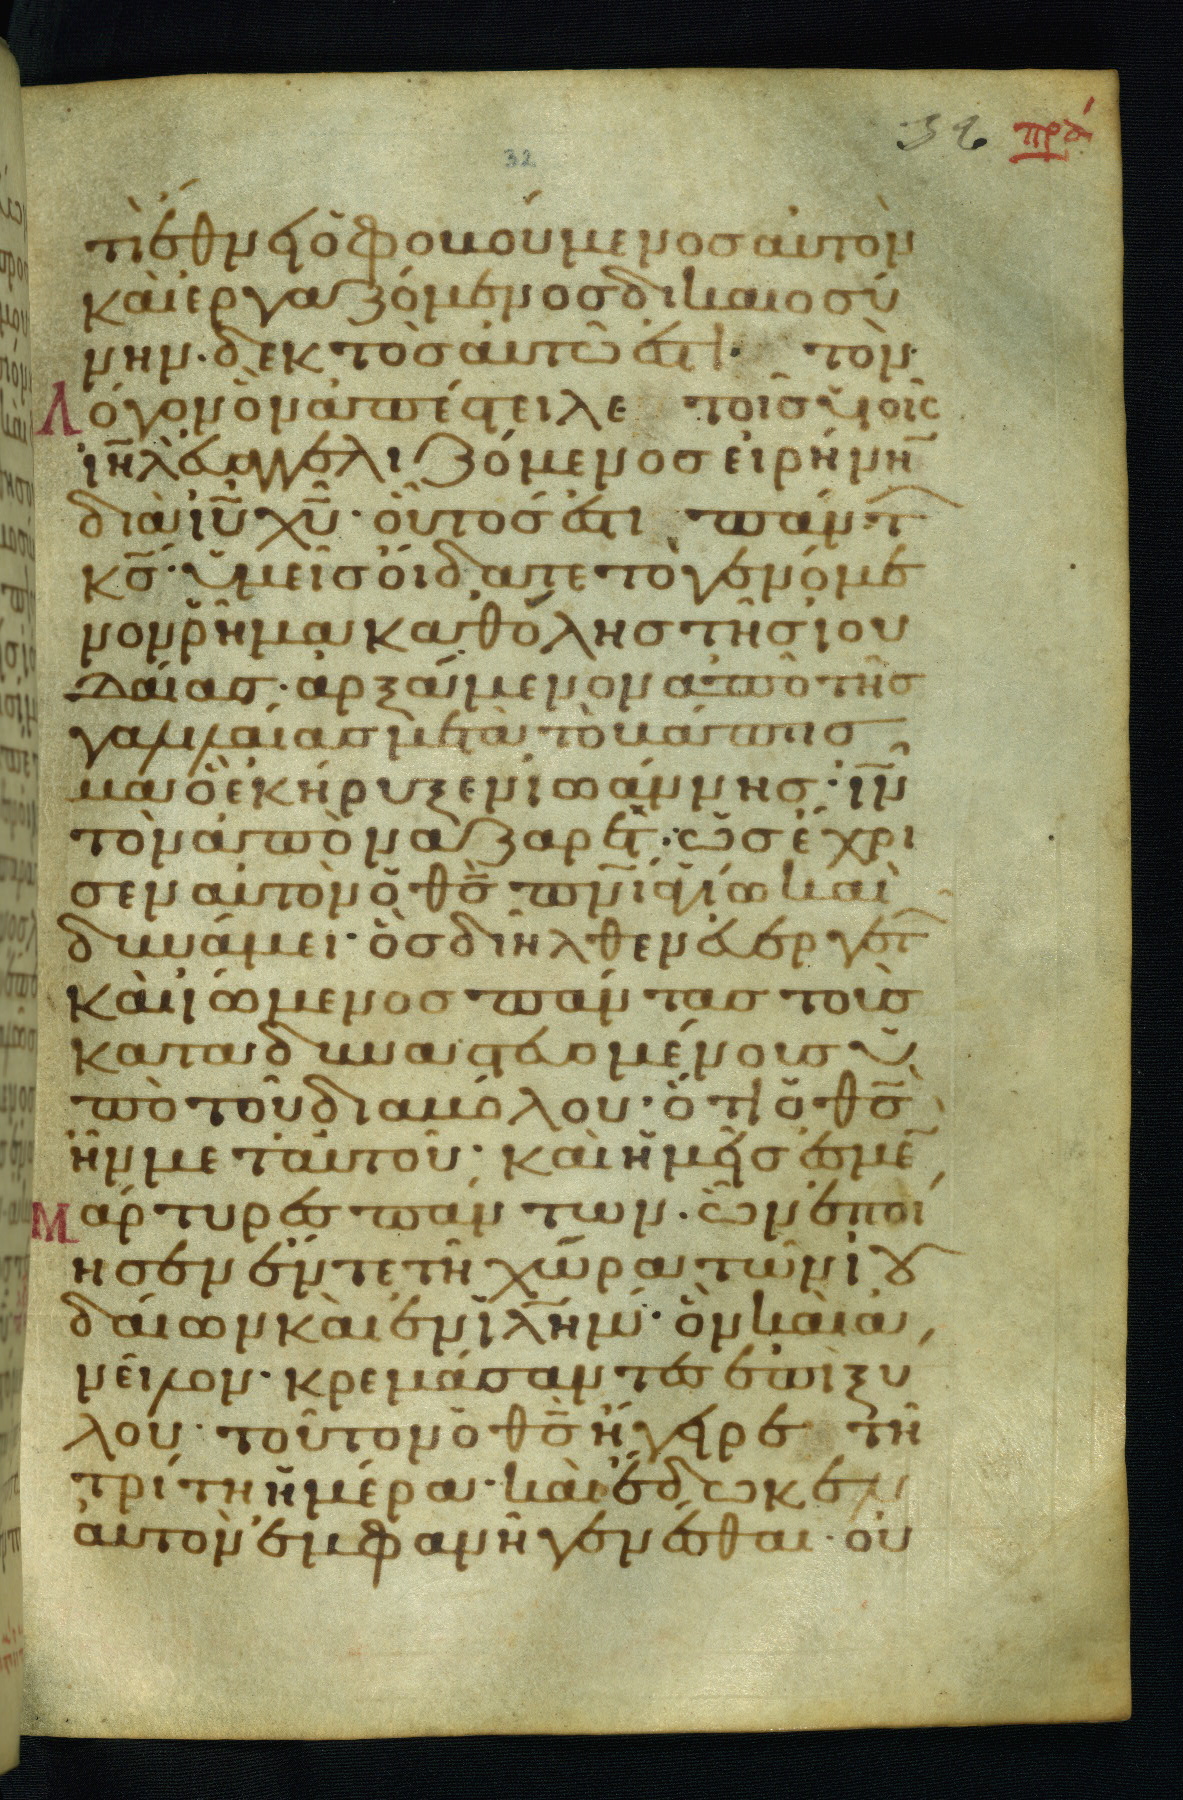 32 32 πρά
τὶ ἔθνει ὁ φοβούμενος αὐτὸν
καὶ ἐργαζόμενος δικαιοσύ
νην· δεκτὸς αὐτῶ ἐστι· τὸν
Λόγον ὃν ἀπέστειλε τοῖς ὑιοῖς
ἰηλ εὐαγγελιζόμενος εἰρήνη
διὰ ἰυ χυ· οὗτός ἐστι πάντ
κς· ὑμεῖς οἴδατε τὸ γενόμε
νον ῥῆμα καθόλης τῆς ἰου
δαίας· ἀρξάμενον ἀπὸ τῆς
γαλιλαίας μετὰ τὸ βάπτισ
μα ὃ ἐκήρυξεν ἰωάννης· ἰν
τὸν ἀπὸ ναζαρέτ· ὡς ἔχρι
σεν αὐτὸν ὁ θς πνι ἁγίω καὶ
δυνάμει· ὃς διῆλθεν εὐεργετ
καὶ ἰώμενος πάντας τοὺς
καταδυναστευομένους ὑ
πὸ τοῦ διαβόλου· ὅτι ὁ θς
ἦν μετ' αὐτοῦ· καὶ ἡμεῖς ἐσμὲ
Μάρτυρες πάντων· ὧν ἐποί
ησεν ἔν τε τῆ χώρα τῶν ἰου
δαίων καὶ ἐν ἰλημ· ὃν καὶ ἀ
νεῖλον· κρεμάσαντες ἐπὶ ξύ
λου· τοῦτον ὁ θς ἤγειρε τῆ
τρίτη ἡμέρα· καὶ ἔδωκεν
αὐτὸν ἐμφανῆ γενέσθαι· οὐ